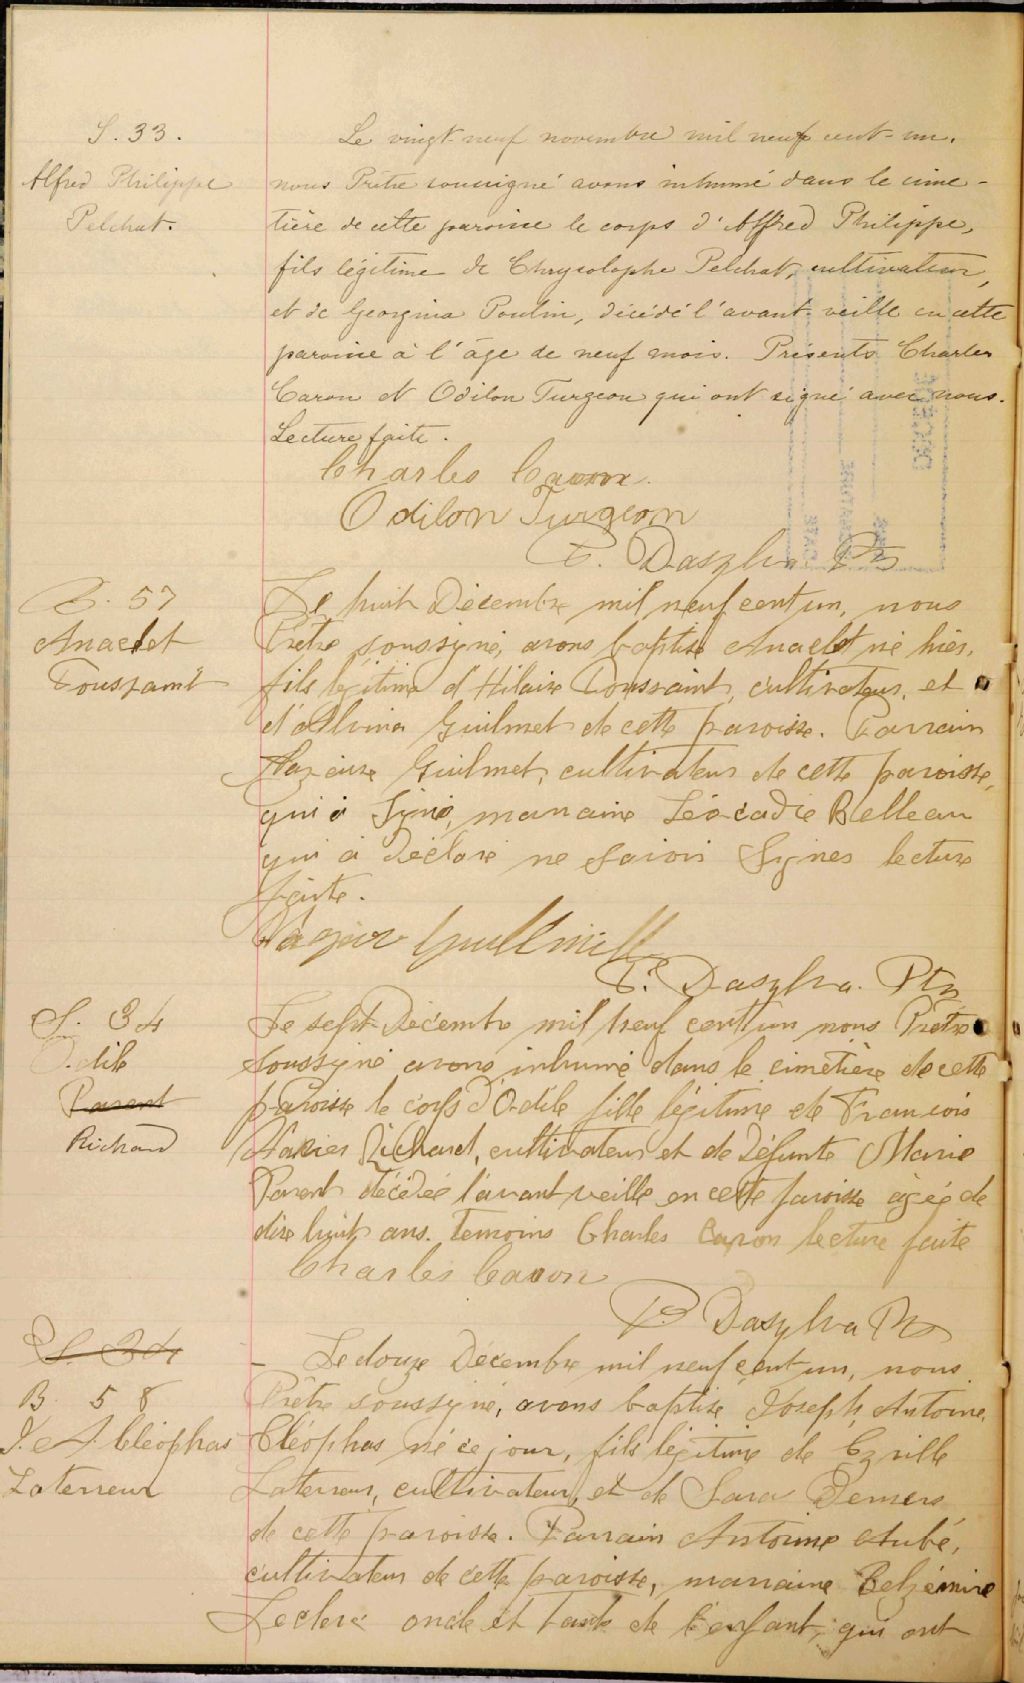 S. 33.
Alfred Philippe
Pelchat.
Le vingt-neuf novembre mil neuf cent-un.
nous Prêtre soussigné avons inhumé dans le cime-
tière de cette paroisse le corps d'Alfred Philippe,
fils légitime de Chrysologhe Pelchat, cultivateur,
et de Georgina Poulin, décédé l'avant-veille en cette
paroisse à l'âge de neuf mois. Présents Charles
Caron et Odilon Turgeon qui ont signé avec nous.
Lecture faite.
Charles Caron.
Odilon Turgeon
P. Dasylva Ptr
B. 57
Anaclet
Toussaint
Le huit Décembre mil neuf cent un, nous
Prêtre soussigné, avons baptisé Anaclet né hier,
fils légitime d'Hilaire Toussaint, cultivateur, et
d'Alvina Guilmet de cette paroisse. Parrain
Nazaire Guilmet, cultivateur de cette paroisse,
qui a signé, marraine Léocadie Belleau
qui a déclaré ne savoir signer lecture
faite.
P. Dasylva. Ptr
S. 34
Odile
Parent
Richard
Le sept Décembre mil neuf cent un nous Prêtre
soussigné avons inhumé dans le cimetière de cette
paroisse le corps d'Odile fille légitime de François
Xavier Richard, cultivateur et de Défunte Marie
Parent décédée l'avant veille en cette paroisse âgée de
dix huit ans. temoins Charles Caron lecture faite
Charles Caron
P. Dasylva Ptr
S 34
B. 58
J. A. Cléophas
Laterreur
Le douze Décembre mil neuf cent un, nous
Prêtre soussigné, avons baptisé Joseph Antoine
Cléophas né ce jour, fils légitime de Cyrille
Laterreur, cultivateur, et de Sara Demers
de cette paroisse. Parrain Antoine Aubé,
cultivateur de cette paroisse, marraine Belzémire
Leclerc oncle et tante de l'enfant, qui ont